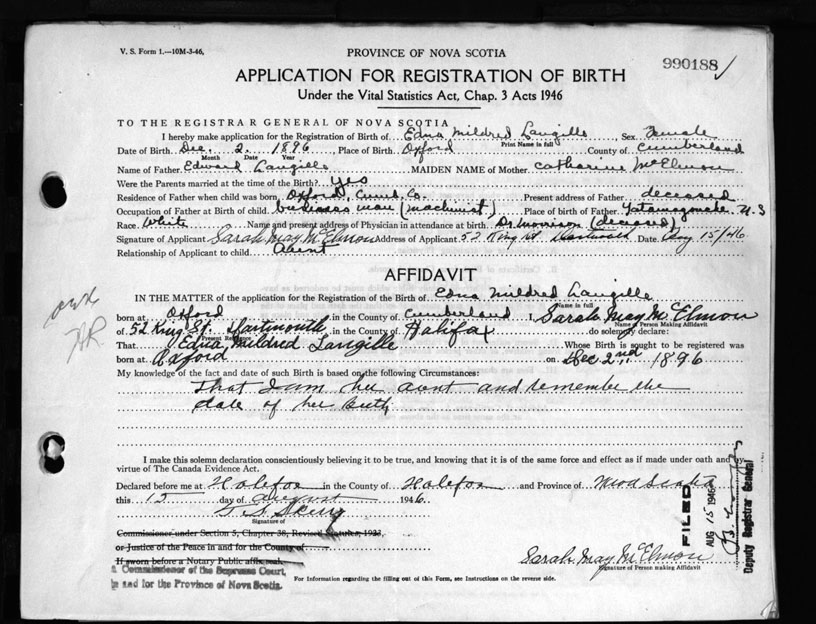 V. S. Form 1.—10M-3-46,
PROVINCE OF NOVA SCOTIA
990188
APPLICATION FOR REGISTRATION OF BIRTH
Under the Vital Statistics Act, Chap. 3 Acts 1946
TO THE REGISTRAR GENERAL OF NOVA SCOTIA
I hereby make application for the Registration of Birth of Edna Mildred Langille Sex Female
Print Name in full
Date of Birth Dec. 2. 1896 Place of Birth Oxford County of Cumberland
Month Date Year
Name of Father Edward Langille MAIDEN NAME of Mother Catharine McElmon
Were the Parents married at the time of the Birth? Yes
Residence of Father when child was born Oxford, Cumb. Co. Present address of Father deceased
Occupation of Father at Birth of child business man (machinist) Place of birth of Father Tatamagouche N.S
Race White Name and present address of Physician in attendance at birth Dr Morrison (deceased)
Signature of Applicant Sarah May McElmon Address of Applicant 52 King St Dartmouth Date Aug 15/46
Relationship of Applicant to child Aunt
AFFIDAVIT
IN THE MATTER of the application for the Registration of the Birth of Edna Mildred Langille
Name in full
born at Oxford in the County of Cumberland I, Sarah May McElmon
Name of Person Making Affidavit
of 52 King St. Dartmouth in the County of Halifax do solemnly declare:
Present Residence
That Edna Mildred Langille Whose Birth is sought to be registered was
born at Oxford on Dec 2nd 1896
My knowledge of the fact and date of such Birth is based on the following Circumstances:
That I am her aunt and remember the
date of her birth
I make this solemn declaration conscientiously believing it to be true, and knowing that it is of the same force and effect as if made under oath and by
virtue of The Canada Evidence Act.
Declared before me at Halifax in the County of Halifax and Province of Nova Scotia
this 15 day of August 1946.
Signature of
Commissioner under Section 5, Chapter 38, Revised Statutes, 1923,
or Justice of the Peace in and for the County of
If sworn before a Notary Public affix seal.
A Commissioner of the Supreme Court,
in and for the Province of Nova Scotia.
For Information regarding the filling out of this Form, see Instructions on the reverse side.
Sarah May McElmon
Signature of Person making Affidavit
FILED
AUG 15 1946
Deputy Registrar General